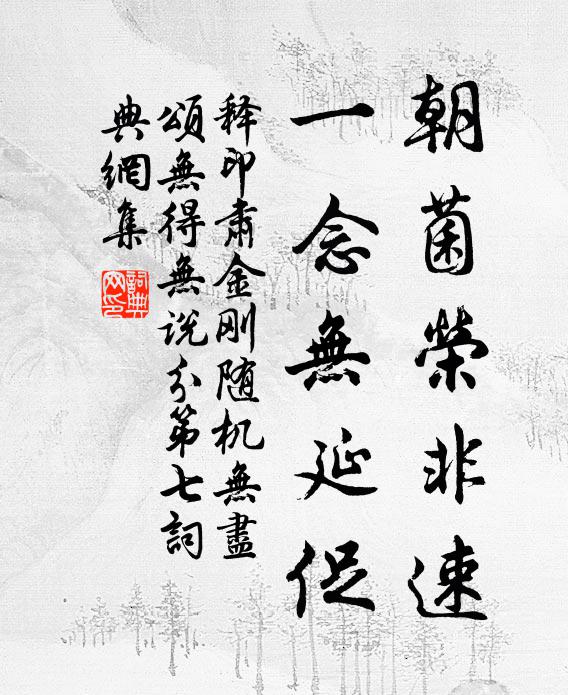 朝菌榮非速
一念無延促
释印肃金刚随机無盡
頌無得無说分第七詞
典網集
詞典
网印